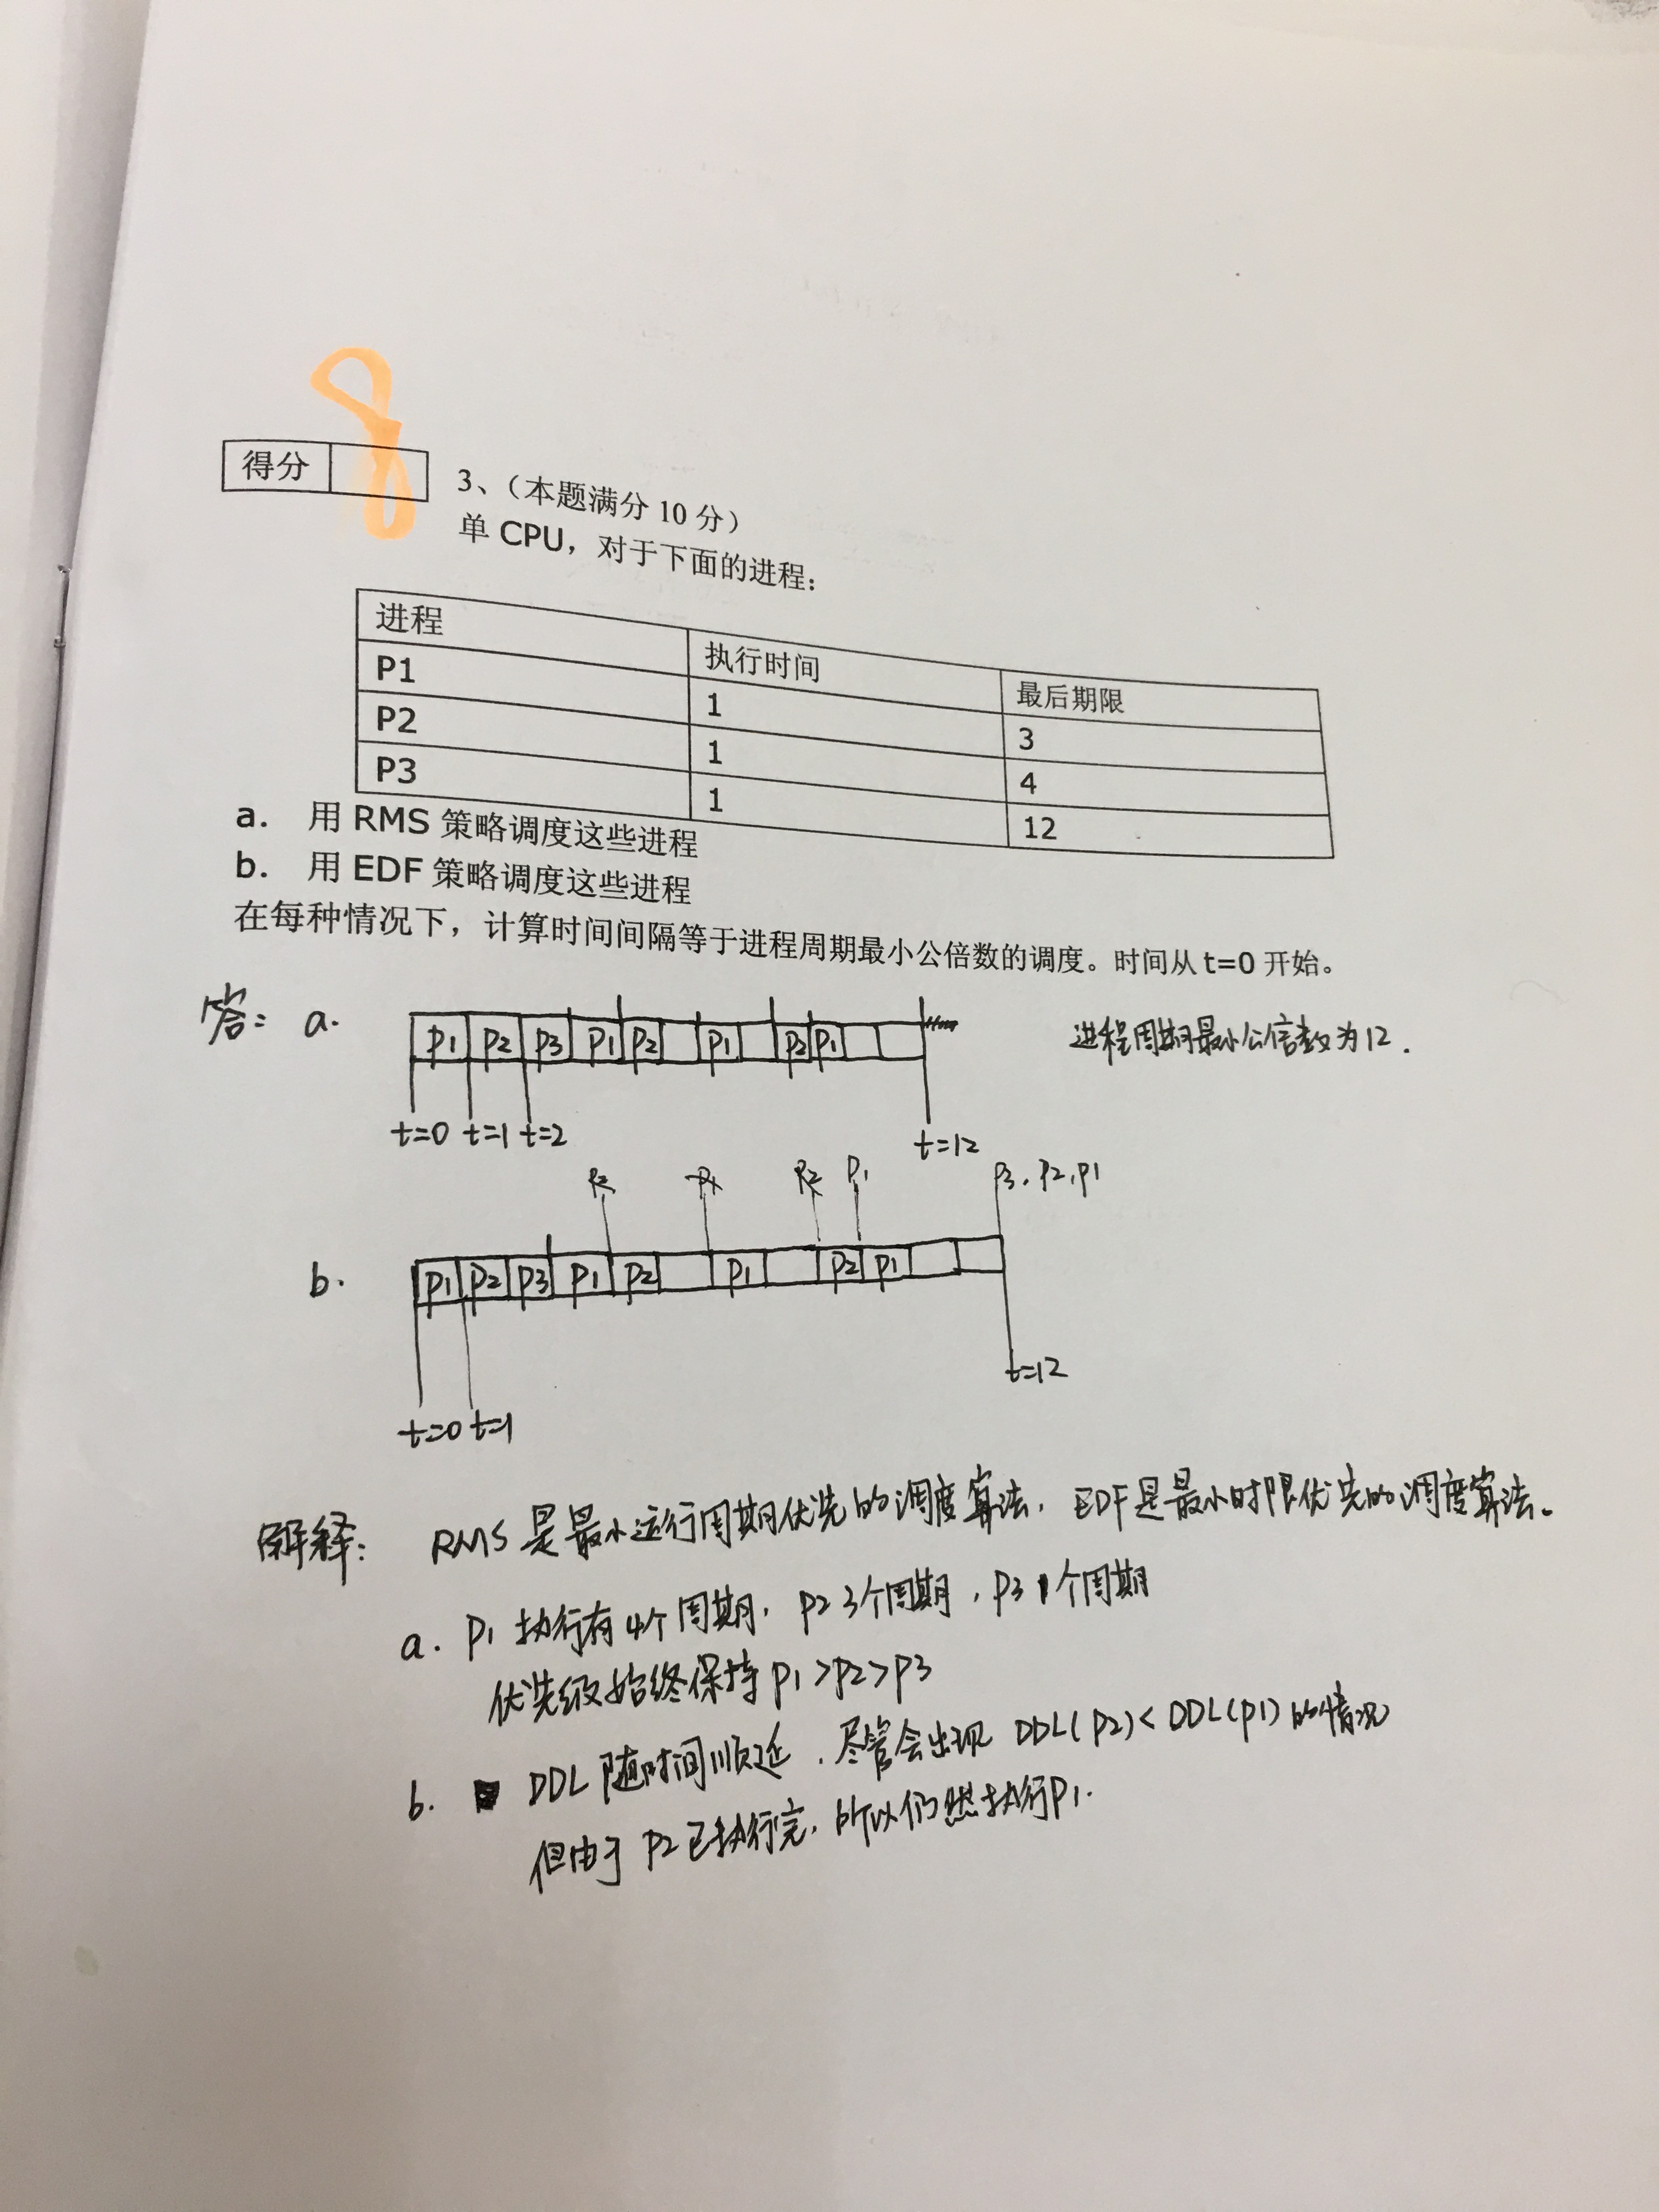 8
得分
3、（本题满分 10 分）
单 CPU，对于下面的进程：
进程 执行时间 最后期限
P1 1 3
P2 1 4
P3 1 12
a. 用 RMS 策略调度这些进程
b. 用 EDF 策略调度这些进程
在每种情况下，计算时间间隔等于进程周期最小公倍数的调度。时间从 t=0 开始。
答: a. P1 P2 P3 P1 P2 P1 P2 P1 进程周期最小公倍数为12.
t=0 t=1 t=2 t=12
P2 P1 P2 P1 P3. P2, P1
b. P1 P2 P3 P1 P2 P1 P2 P1
t=12
t=0 t=1
解释: RMS 是最小运行周期优先的调度算法, EDF是最小时限优先的调度算法。
a. P1 执行有4个周期, P2 3个周期, P3 1个周期
优先级始终保持 P1>P2>P3
b. DDL 随时间顺延, 尽管会出现 DDL(P2)<DDL(P1)的情况
但由于 P2已执行完, 所以仍然执行P1.